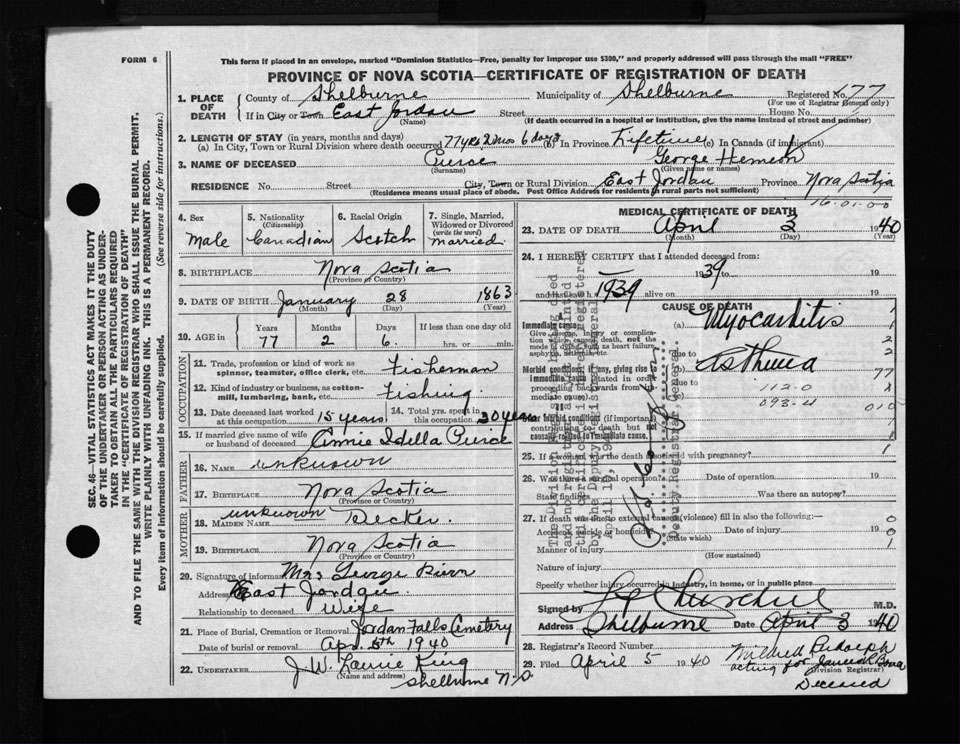 FORM 6
This form if placed in an envelope, marked "Dominion Statistics—Free, penalty for improper use $300," and properly addressed will pass through the mail "FREE"
PROVINCE OF NOVA SCOTIA—CERTIFICATE OF REGISTRATION OF DEATH
1. PLACE OF DEATH
County of Shelburne Municipality of Shelburne Registered No. 177
(For use of Registrar General only)
If in City or Town East Jordan Street House No.
(Name) (If death occurred in a hospital or institution, give the name instead of street and number)
2. LENGTH OF STAY (in years, months and days)
(a) In City, Town or Rural Division where death occurred 77 yrs 2 mos 6 days (b) In Province Lifetime (c) In Canada (if immigrant)
3. NAME OF DECEASED Pierce George Hemeon
(Surname) (Given name or names)
RESIDENCE No. Street City, Town or Rural Division East Jordan Province Nova Scotia
(Residence means usual place of abode. Post Office Address for Residents in rural parts not sufficient)
16.01.00
4. Sex
Male
5. Nationality (Citizenship)
Canadian
6. Racial Origin
Scotch
7. Single, Married, Widowed or Divorced (write the word)
married
8. BIRTHPLACE Nova Scotia
(Province or Country)
9. DATE OF BIRTH January 28 1863
(Month) (Day) (Year)
10. AGE in Years Months Days If less than one day old
77 2 6 hrs. or min.
OCCUPATION
11. Trade, profession or kind of work as spinner, teamster, office clerk, etc. Fisherman
12. Kind of industry or business, as cotton-mill, lumbering, bank, etc. Fishing
13. Date deceased last worked at this occupation 15 years 14. Total yrs. spent in this occupation 30 years
15. If married give name of wife or husband of deceased Annie Idella Pierce
FATHER
16. NAME unknown
17. BIRTHPLACE Nova Scotia
(Province or Country)
MOTHER
18. MAIDEN NAME unknown Decker.
19. BIRTHPLACE Nova Scotia
(Province or Country)
20. Signature of informant Mrs George
Address East Jordan.
Relationship to deceased Wife
21. Place of Burial, Cremation or Removal Jordan Falls Cemetery
Date of burial or removal Apr. 5th 1940
22. UNDERTAKER J.W. Laurie King
(Name and address) Shelburne N.S.
MEDICAL CERTIFICATE OF DEATH
23. DATE OF DEATH April 3 1940
(Month) (Day) (Year)
24. I HEREBY CERTIFY that I attended deceased from
1939 to 19
and last saw h 1939 alive on 19
CAUSE OF DEATH
Immediate cause (a) Myocarditis
Give disease, injury or complication which caused death, not the mode of dying such as heart failure, asphyxia, asthenia, etc.
due to
Morbid conditions, if any, giving rise to immediate cause
Asthma
due to
112.0
093-4
77
010
Other morbid conditions (if important) contributing to death but not causally related to immediate cause.
25. If a woman, was the death associated with pregnancy?
26. Was there a surgical operation? Date of operation
State findings Was there an autopsy?
27. If death was due to external causes (violence) fill in also the following:—
Accident, suicide or homicide? Date of injury
(State which)
Manner of injury
(How sustained)
Nature of injury
Specify whether injury occurred in industry, in home, or in public place
Signed by Churchill M.D.
Address Shelburne Date April 3 1940
28. Registrar's Record Number
29. Filed April 5 1940 Mildred Rudolph
acting for James
(Division Registrar)
Deceased
Deputy Registrar General
SEC. 46—VITAL STATISTICS ACT MAKES IT THE DUTY
OF THE UNDERTAKER OR PERSON ACTING AS UNDER-
TAKER TO OBTAIN ALL THE PARTICULARS REQUIRED
IN THE "CERTIFICATE OF REGISTRATION OF DEATH"
AND TO FILE THE SAME WITH THE DIVISION REGISTRAR WHO SHALL ISSUE THE BURIAL PERMIT.
WRITE PLAINLY WITH UNFADING INK. THIS IS A PERMANENT RECORD.
Every item of information should be carefully supplied. (See reverse side for instructions.)